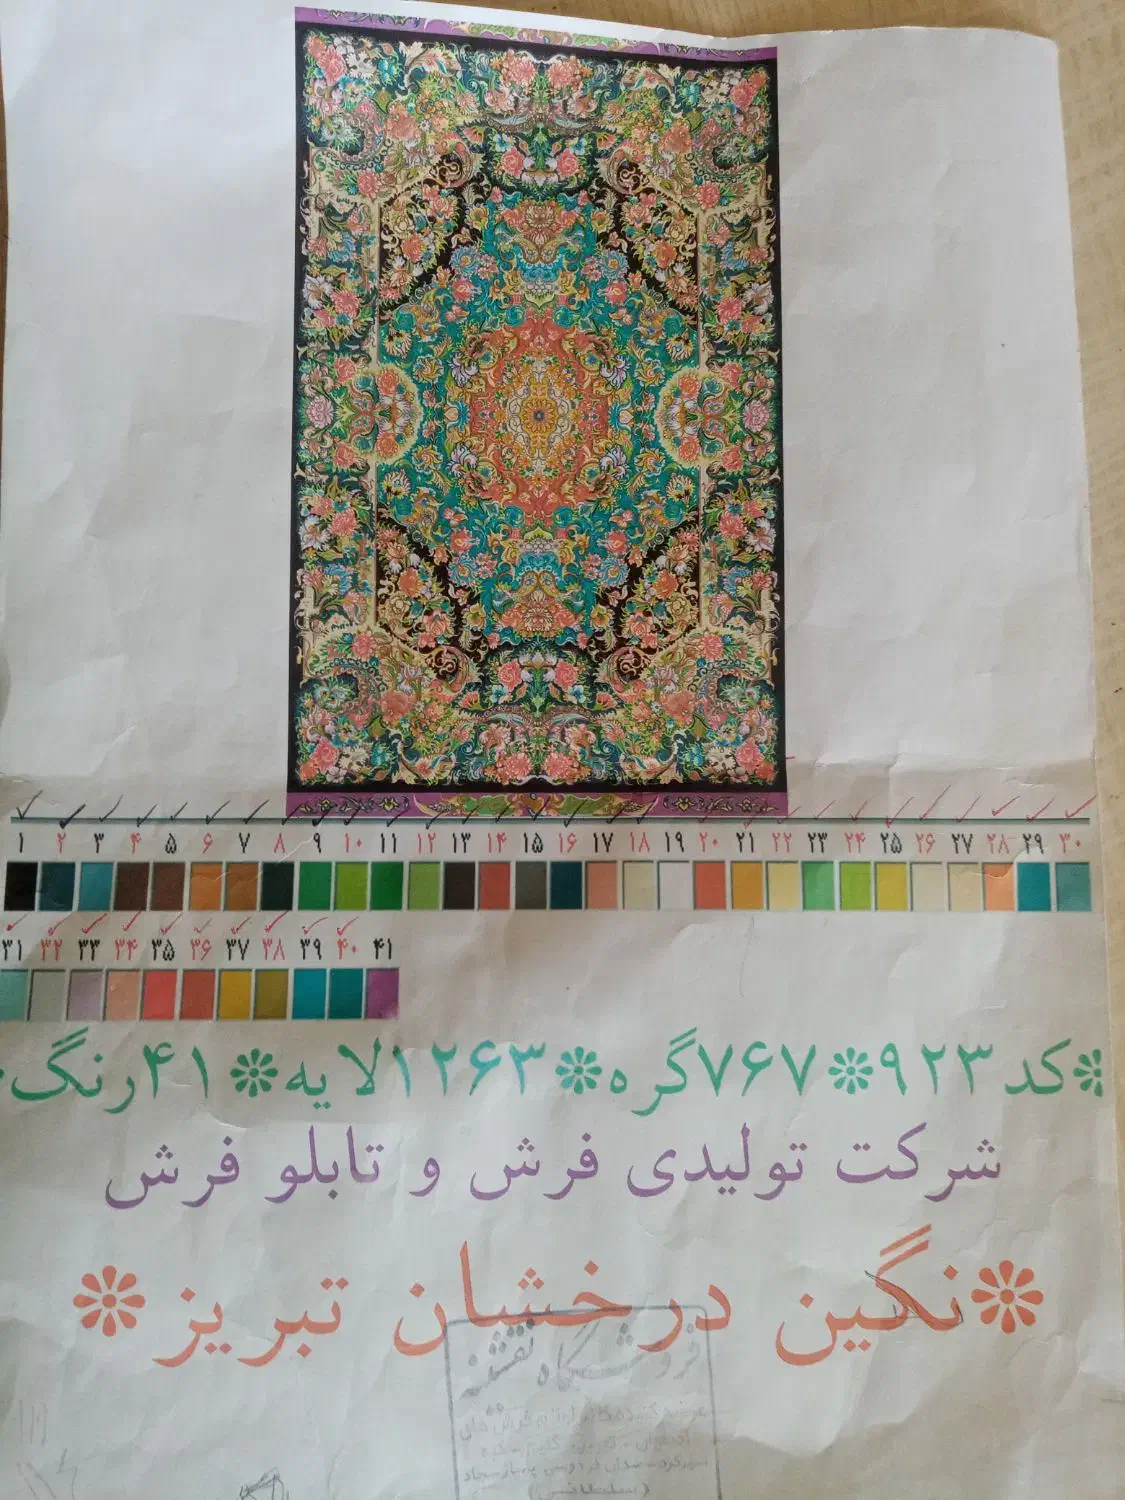 ۱ ۲ ۳ ۴ ۵ ۶ ۷ ۸ ۹ ۱۰ ۱۱ ۱۲ ۱۳ ۱۴ ۱۵ ۱۶ ۱۷ ۱۸ ۱۹ ۲۰ ۲۱ ۲۲ ۲۳ ۲۴ ۲۵ ۲۶ ۲۷ ۲۸ ۲۹ ۳۰
۳۱ ۳۲ ۳۳ ۳۴ ۳۵ ۳۶ ۳۷ ۳۸ ۳۹ ۴۰ ۴۱
کد ۹۲۳ ۷۶۷گره ۱۲۶۳لایه ۴۱رنگ
شرکت تولیدی فرش و تابلو فرش
نگین درخشان تبریز
فروشگاه نقشینه